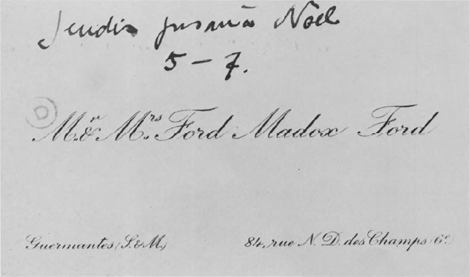 Jeudis jusqu'à Noël
5 – 7.
D
Mr. & Mrs. Ford Madox Ford
Guermantes (S.&M.)
84, rue N. D. des Champs (6e)